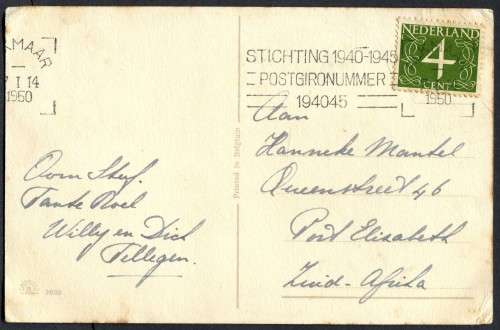 KMAAR
7 I 14
1950
STICHTING 1940-1945
POSTGIRONUMMER
194045
NEDERLAND
4
CENT
1950
Oom Stef.
Tante Roel
Willy en Dick
Tellegen.
Printed in Belgium
Aan
Hanneke Mantel
Queenstreet 46
Port Elisabeth
Zuid-Afrika